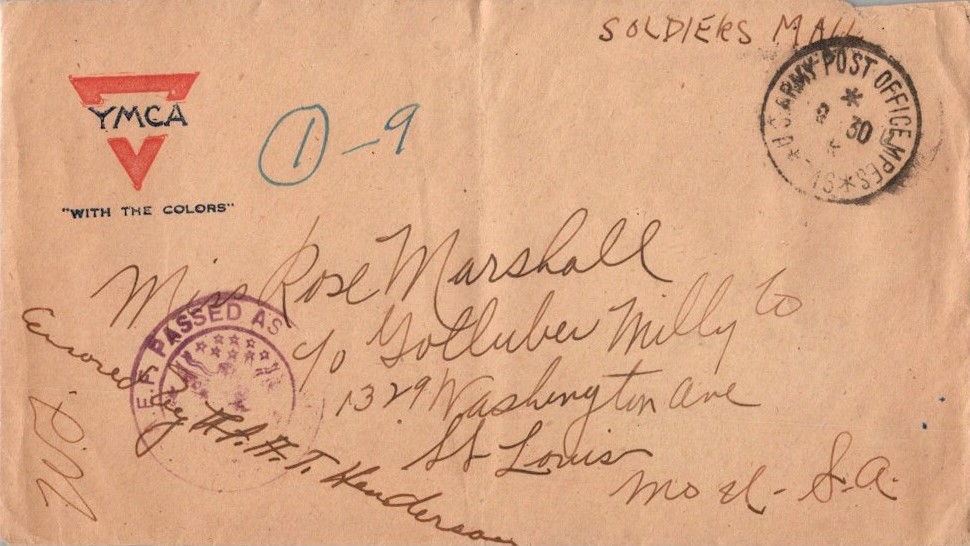 SOLDIERS MAIL
YMCA
"WITH THE COLORS"
1 - 9
U.S. ARMY POST OFFICE MPES
* 30
Miss Rose Marshall
c/o Golluber Milly Co
1329 Washington Ave
St Louis
Mo U-S.A.
E.F. PASSED AS
Censored by
H.T. Henderson